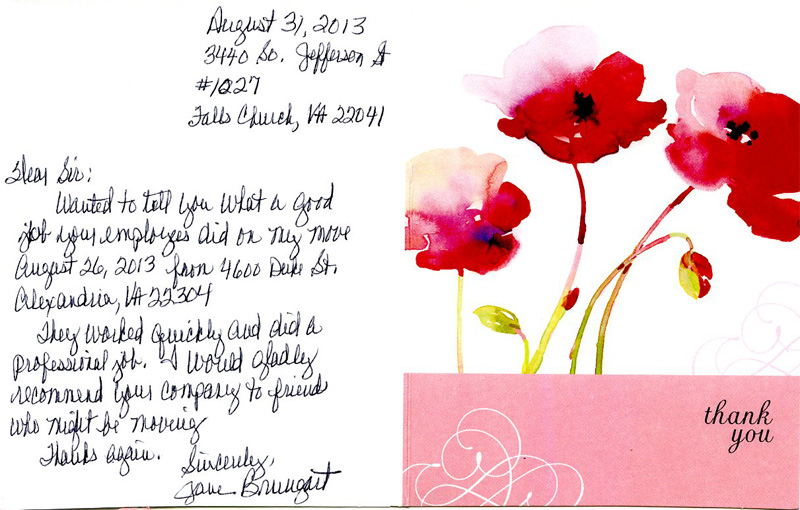 August 31, 2013
3440 So. Jefferson St
#1227
Falls Church, VA 22041
Dear Sir:
Wanted to tell you what a good
job your employees did on my move
August 26, 2013 from 4600 Duke St.
Alexandria, VA 22304
They worked quickly and did a
professional job. I would gladly
recommend your company to friend
who might be moving
Thanks again.
Sincerely,
Jane Brumgart
thank
you